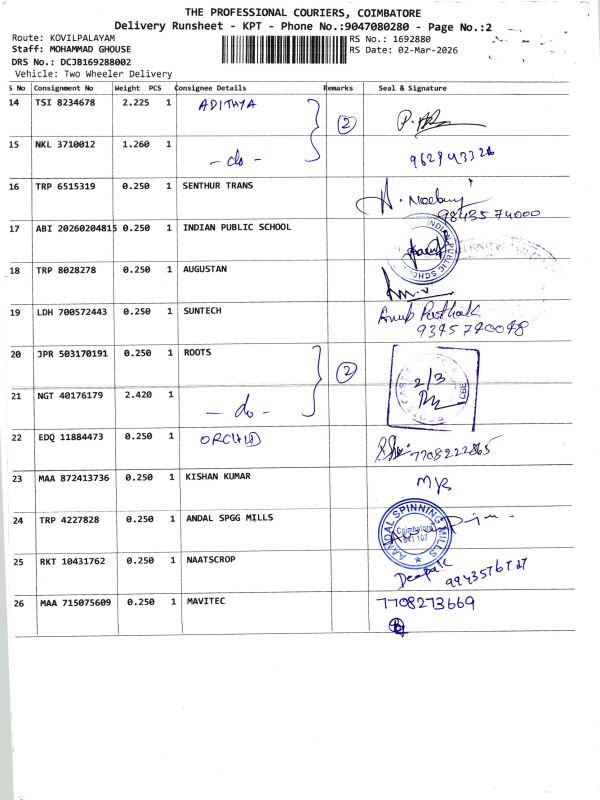 THE PROFESSIONAL COURIERS, COIMBATORE
Delivery Runsheet - KPT - Phone No.:9047080280 - Page No.:2
Route: KOVILPALAYAM RS No.: 1692880
Staff: MOHAMMAD GHOUSE RS Date: 02-Mar-2026
DRS No.: DCJB169288002
Vehicle: Two Wheeler Delivery
S No Consignment No Weight PCS Consignee Details Remarks Seal & Signature
14 TSI 8234678 2.225 1 ADITHYA
2
15 NKL 3710012 1.260 1 - do -
16 TRP 6515319 0.250 1 SENTHUR TRANS
9843574000
17 ABI 20260204815 0.250 1 INDIAN PUBLIC SCHOOL INDIAN PUBLIC SCHOOL
18 TRP 8028278 0.250 1 AUGUSTAN
19 LDH 700572443 0.250 1 SUNTECH
9345740048
20 JPR 503170191 0.250 1 ROOTS
2 2/3
CBE
21 NGT 40176179 2.420 1 - do -
22 EDQ 11884473 0.250 1 ORCHID 7708222865
23 MAA 872413736 0.250 1 KISHAN KUMAR
24 TRP 4227828 0.250 1 ANDAL SPGG MILLS AANDAL SPINNING MILLS
Coimbatore
641 107
25 RKT 10431762 0.250 1 NAATSCROP
Deepak
26 MAA 715075609 0.250 1 MAVITEC 7708273669